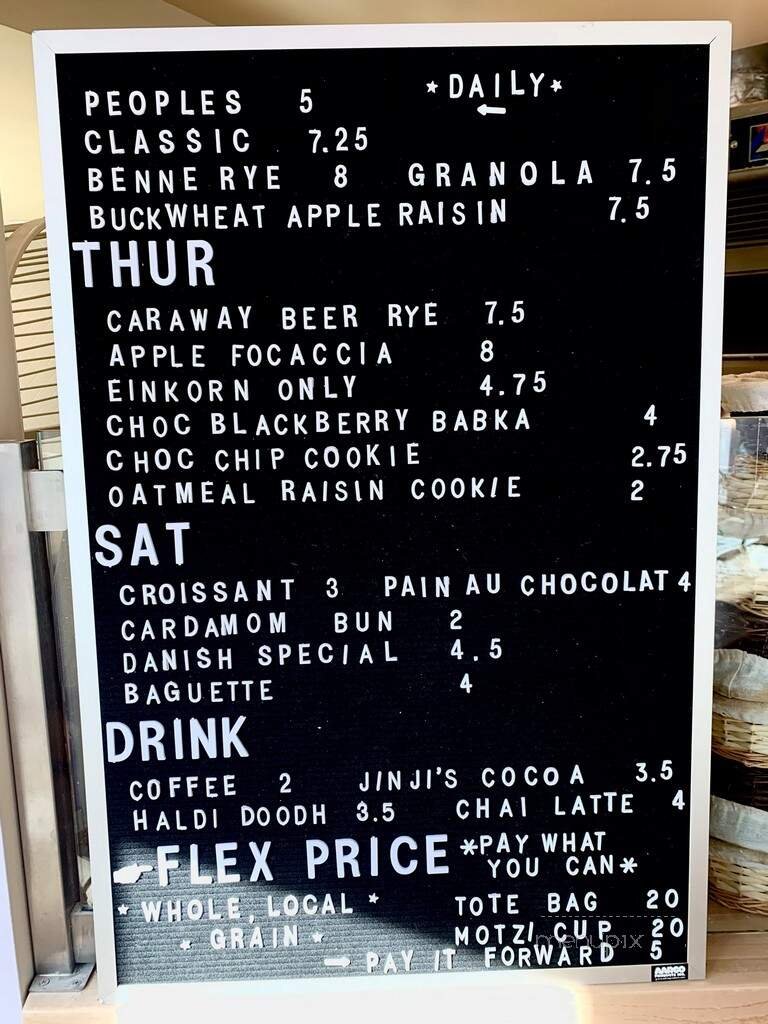 PEOPLES 5 *DAILY*
CLASSIC 7.25 ←
BENNE RYE 8 GRANOLA 7.5
BUCKWHEAT APPLE RAISIN 7.5
THUR
CARAWAY BEER RYE 7.5
APPLE FOCACCIA 8
EINKORN ONLY 4.75
CHOC BLACKBERRY BABKA 4
CHOC CHIP COOKIE 2.75
OATMEAL RAISIN COOKIE 2
SAT
CROISSANT 3 PAIN AU CHOCOLAT 4
CARDAMOM BUN 2
DANISH SPECIAL 4.5
BAGUETTE 4
DRINK
COFFEE 2 JINJI'S COCOA 3.5
HALDI DOODH 3.5 CHAI LATTE 4
FLEX PRICE *PAY WHAT
YOU CAN*
*WHOLE, LOCAL* TOTE BAG 20
*GRAIN* MOTZI CUP 20
→ PAY IT FORWARD 5
menupix
AARCO